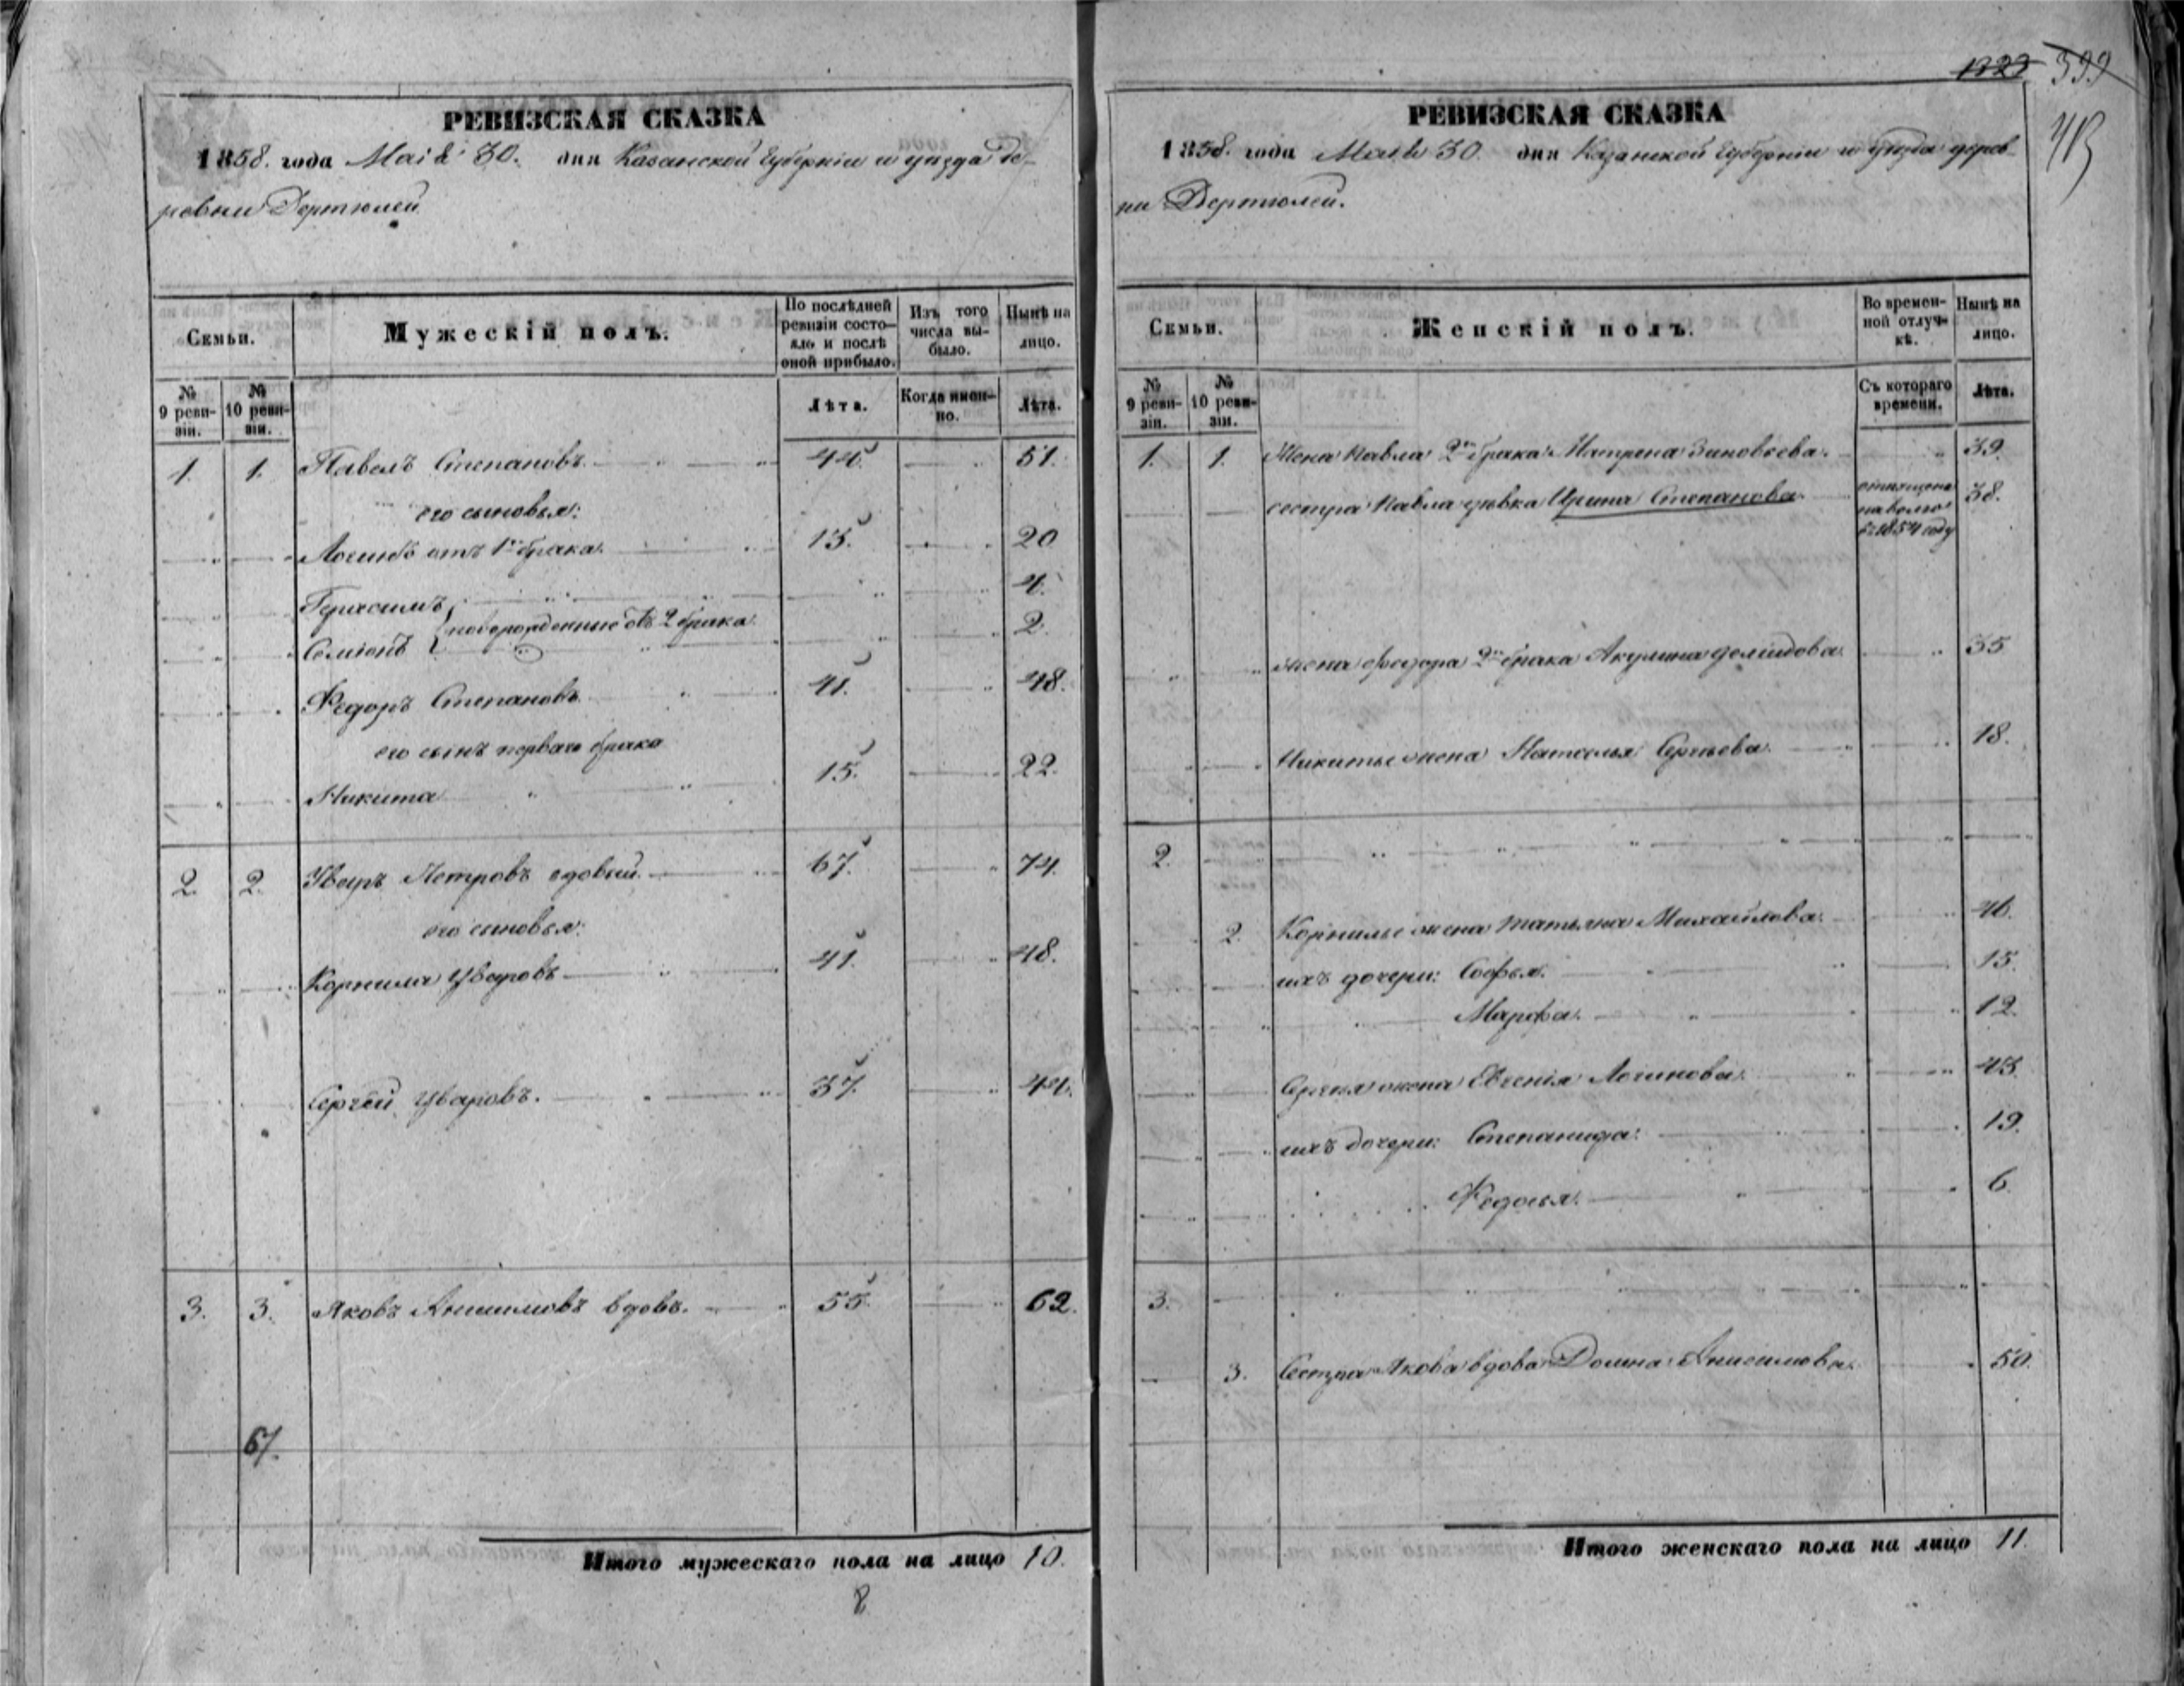 1323 399
413
РЕВИЗСКАЯ СКАЗКА
1858. года Маія 30. дня Казанской Губерніи и уѣзда де-
ревни Дертюлей
Семьи.
Мужескій полъ.
По послѣдней ревизіи состо-яло и послѣ оной прибыло.
Изъ того числа вы-было.
Нынѣ на лицо.
№ 9 реви-зіи.
№ 10 реви-зіи.
Лѣта.
Когда имен-но.
Лѣта.
1. 1. Павелъ Степановъ 44. 51.
его сыновья:
Логинъ отъ 1го брака. 13. 20
Герасимъ 4.
новорожденные отъ 2 брака
Семіонъ 2.
Федоръ Степановъ 41. 48.
его сынъ перваго брака
Никита 15. 22.
2. 2. Уваръ Петровъ вдовый. 67. 74.
его сыновья:
Корнила Уваровъ 41. 48.
Сергѣй Уваровъ. 37. 44.
3. 3. Яковъ Анисимовъ вдовъ. 55. 62.
67.
Итого мужескаго пола на лицо 10.
8
РЕВИЗСКАЯ СКАЗКА
1858. года Маія 30 дня Казанской Губерніи и уѣзда дерев-
ни Дертюлей.
Семьи.
Женскій полъ.
Во времен-ной отлуч-кѣ.
Нынѣ на лицо.
№ 9 реви-зіи.
№ 10 реви-зіи.
Съ котораго времени.
Лѣта.
1. 1. Жена Павла 2го брака Матрена Зиновьева. 39.
сестра Павла дѣвка Ирина Степанова отпущена на волю въ 1854 году 38.
жена Федора 2го брака Акулина 35
Никиты жена Наталья Сергѣева. 18.
2.
2. Корнилы жена Татьяна Михайлова. 46.
ихъ дочери: Софья. 15.
Марфа. 12.
Сергѣя жена Евгенія Логинова. 43.
ихъ дочери: Степанида. 19.
Федосья. 6.
3.
3. Сестра Якова вдова Домна Анисимова. 50.
Итого женскаго пола на лицо 11.